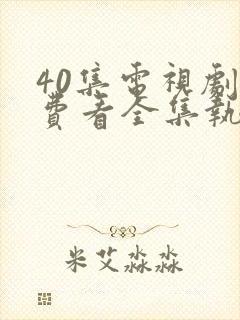 40集電視劇
費看全集執
米艾淼淼